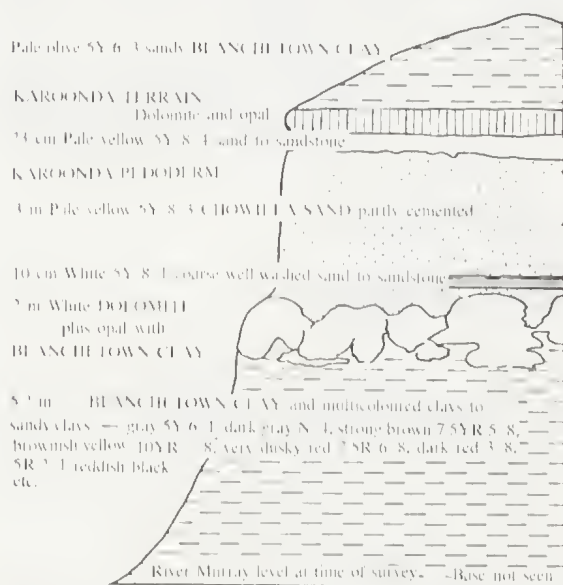 Pale olive 5Y 6/3 sandy BLANCHETOWN CLAY
KAROONDA TERRAIN
Dolomite and opal
cm Pale yellow 5Y 8/4 sand to sandstone
KAROONDA PEDODERM
3 m Pale yellow 5Y 8/3 CHOWILLA SAND partly cemented
10 cm White 5Y 8/1 coarse well washed sand to sandstone
2 m White DOLOMITE
plus opal with
BLANCHETOWN CLAY
m BLANCHETOWN CLAY and multicoloured clays to
sandy clays — gray 5Y 6/1, dark gray N 4, strong brown 7.5YR 5/8,
brownish yellow 10YR 8, very dusky red 8, dark red 3/8,
reddish black
etc.
River Murray level at time of survey. -Base not seen